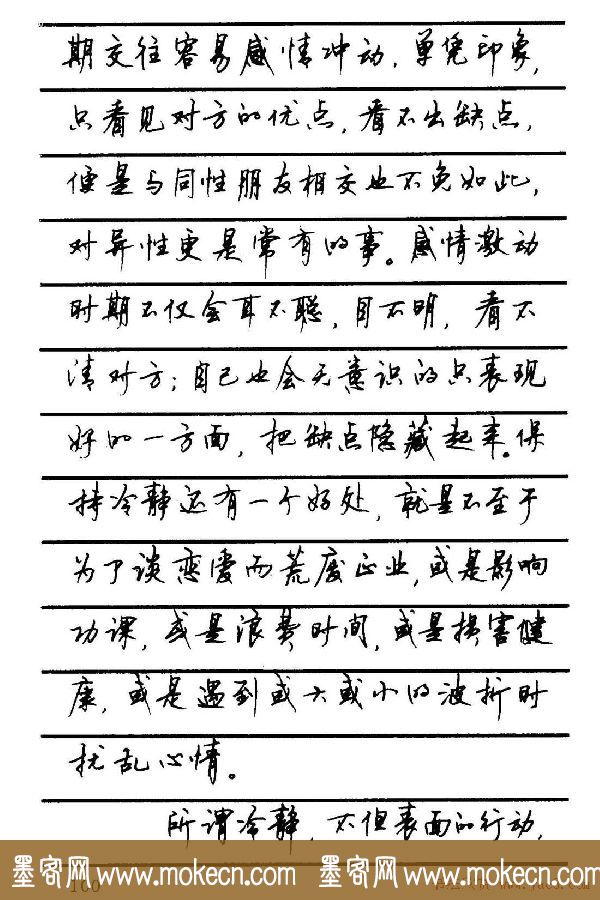 期交往容易感情冲动，单凭印象，
只看见对方的优点，看不出缺点，
便是与同性朋友相交也不免如此，
对异性更是常有的事。感情激动
时期不仅会耳不聪，目不明，看不
清对方；自己也会无意识的只表现
好的一方面，把缺点隐藏起来。保
持冷静还有一个好处，就是不至于
为了谈恋爱而荒废正业，或是影响
功课，或是浪费时间，或是损害健
康，或是遇到或大或小的波折时
扰乱心情。
所谓冷静，不但表面的行动，
墨客网 www.mokecn.com 墨客网 www.mokecn.com
100